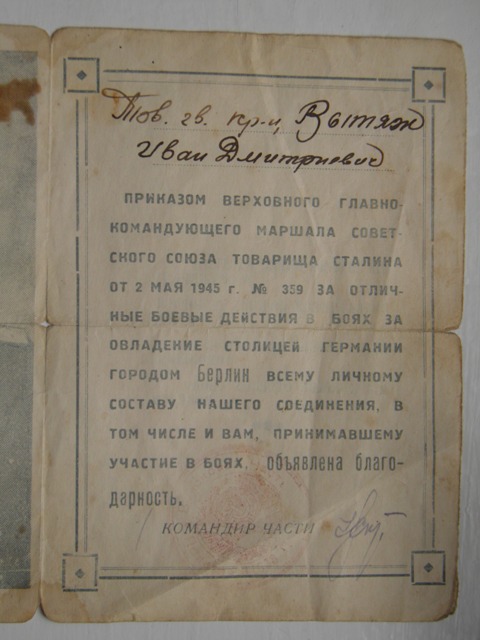 Тов. гв. кр-ц Вытяж
Иван Дмитриевич
ПРИКАЗОМ ВЕРХОВНОГО ГЛАВНО-
КОМАНДУЮЩЕГО МАРШАЛА СОВЕТ-
СКОГО СОЮЗА ТОВАРИЩА СТАЛИНА
ОТ 2 МАЯ 1945 г. № 359 ЗА ОТЛИЧ-
НЫЕ БОЕВЫЕ ДЕЙСТВИЯ В БОЯХ ЗА
ОВЛАДЕНИЕ СТОЛИЦЕЙ ГЕРМАНИИ
ГОРОДОМ Берлин ВСЕМУ ЛИЧНОМУ
СОСТАВУ НАШЕГО СОЕДИНЕНИЯ, В
ТОМ ЧИСЛЕ И ВАМ, ПРИНИМАВШЕМУ
УЧАСТИЕ В БОЯХ, объявлена благо-
дарность.
КОМАНДИР ЧАСТИ